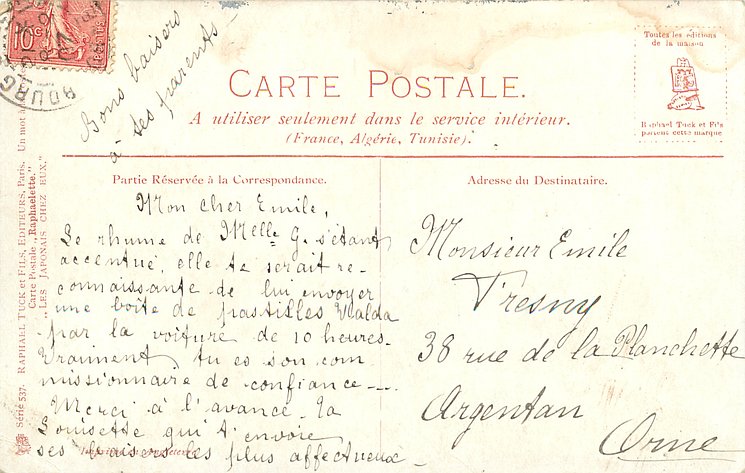 10c
BOURG
Bons baisers
à tes parents
CARTE POSTALE.
A utiliser seulement dans le service intérieur.
(France, Algérie, Tunisie).
Toutes les éditions
de la maison
Raphael Tuck et Fils
portent cette marque
Série 537. RAPHAEL TUCK et FILS, EDITEURS, Paris. Un mot à
Carte Postale „Raphaelette."
„LES JAPONAIS CHEZ EUX."
Partie Réservée à la Correspondance.
Mon cher Emile,
Le rhume de Melle G. s'étant
accentué, elle te serait re-
connaissante de lui envoyer
une boîte de pastilles Valda
par la voiture de 10 heures.
Vraiment tu es son com
missionnaire de confiance ----
Merci à l'avance. Ta
Louisette qui t'envoie
ses baisers les plus affectueux -
Adresse du Destinataire.
Monsieur Emile
Fresny
38 rue de la Planchette
Argentan
Orne